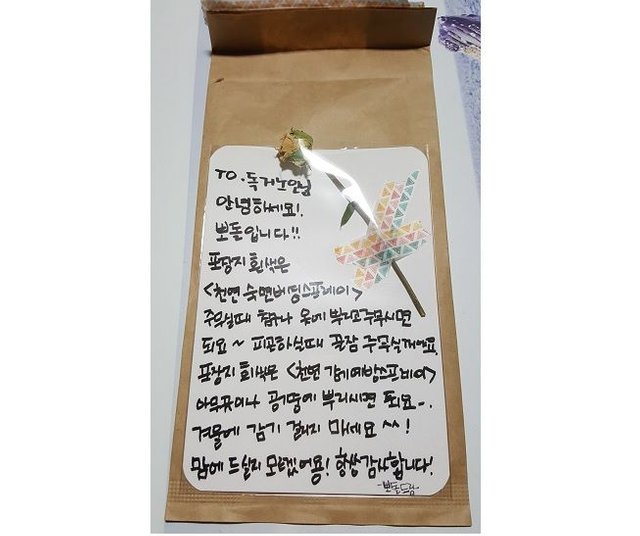 TO.독거노인님
안녕하세요!
뽀돌입니다!!
포장지 흰색은
<천연 숙면베딩스프레이>
주무실때 침구나 옷에 뿌리고주무시면
되요~ 피곤하실때 꿀잠 주무실꺼에요
포장지 회색은 <천연 감기예방스프레이>
아무곳이나 공기중에 뿌리시면 되요~.
겨울에 감기 걸리지 마세요^^!
맘에 드실지 모르겠어용! 항상감사합니다!
-뽀돌드림